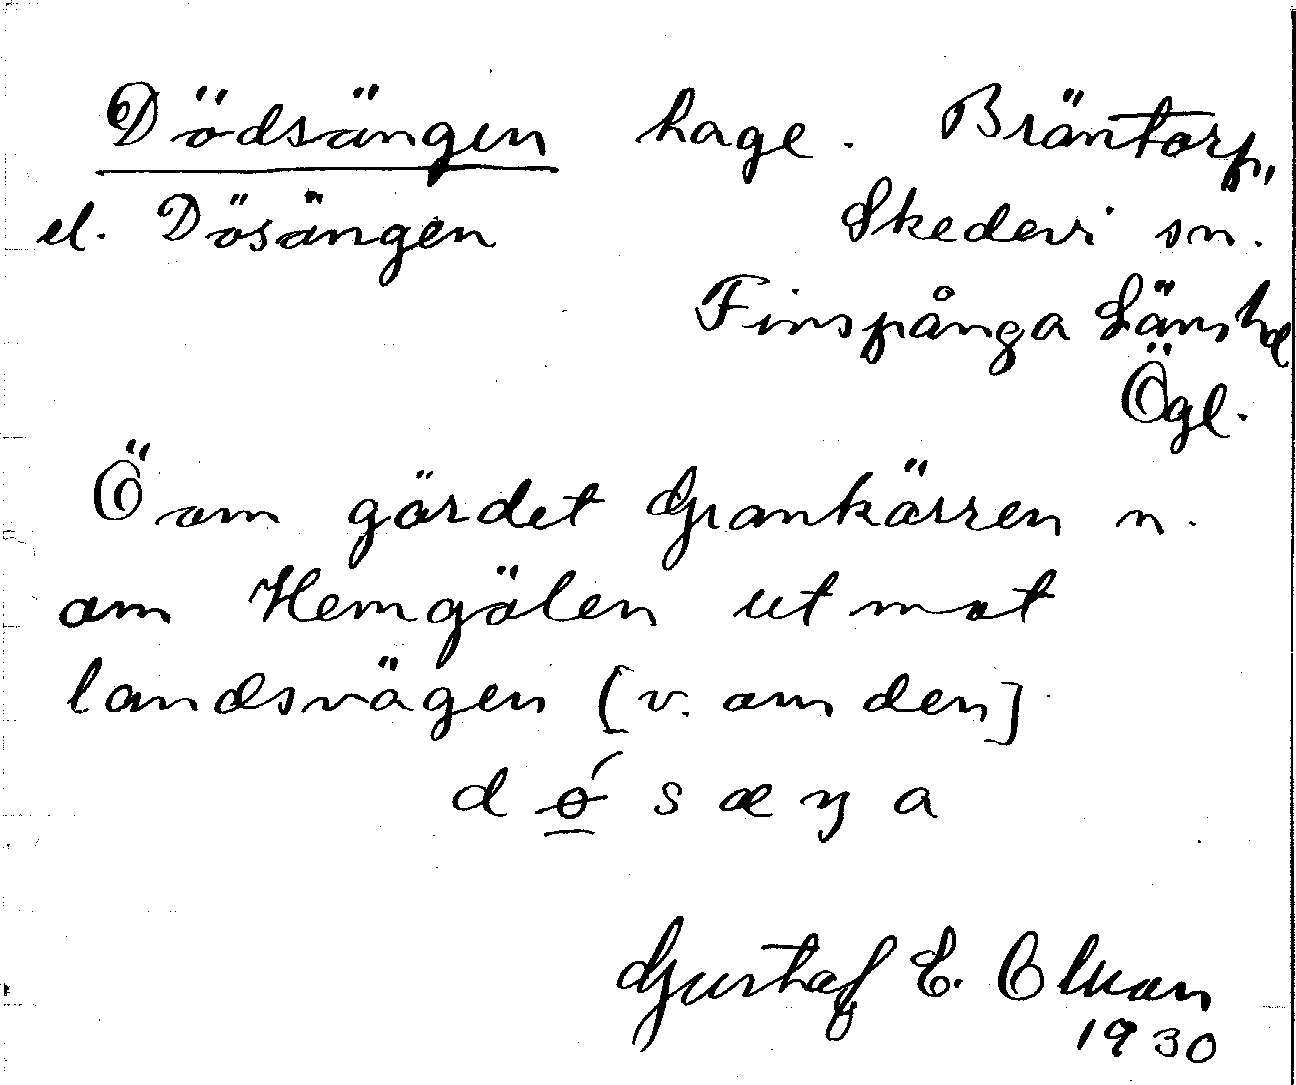 Dödsängen hage. Bräntorp,,
el. Dösängen Skedevi sn.
Finspånga Länshd
Ögl.
Ö om gärdet Grankärren n.
om Hemgölen ut mot
landsvägen (v. om den]
d ɵ́ s æ ŋ a
Gustaf E. Olson
1930